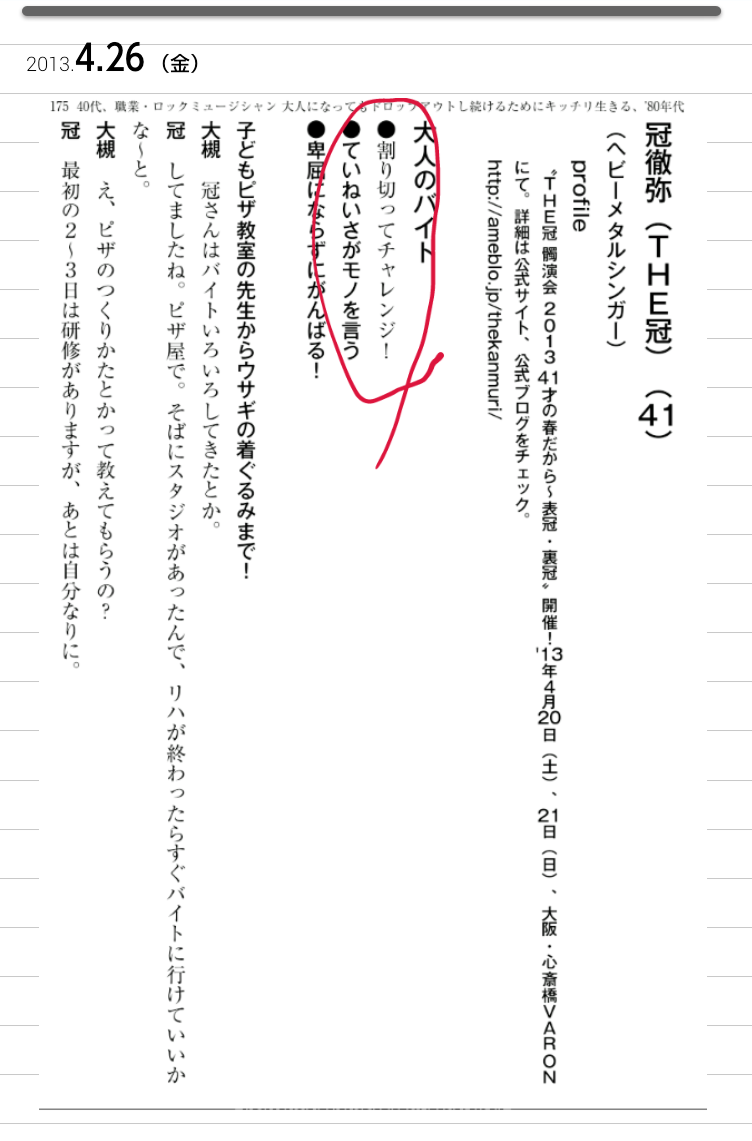 2013.4.26（金）
175 40代、職業・ロックミュージシャン 大人になってもドロップアウトし続けるためにキッチリ生きる、'80年代
冠徹弥（ＴＨＥ冠）（41）
（ヘビーメタルシンガー）
profile
〝ＴＨＥ冠 髑演会 ２０１３ 41才の春だから～表冠・裏冠〟開催！'13年４月20日（土）、21日（日）、大阪・心斎橋ＶＡＲＯＮ
にて。詳細は公式サイト、公式ブログをチェック。
http://ameblo.jp/thekanmuri/
大人のバイト
●割り切ってチャレンジ！
●ていねいさがモノを言う
●卑屈にならずにがんばる！
子どもピザ教室の先生からウサギの着ぐるみまで！
大槻　冠さんはバイトいろいろしてきたとか。
冠　してましたね。ピザ屋で。そばにスタジオがあったんで、リハが終わったらすぐバイトに行けていいか
な～と。
大槻　え、ピザのつくりかたとかって教えてもらうの？
冠　最初の２～３日は研修がありますが、あとは自分なりに。